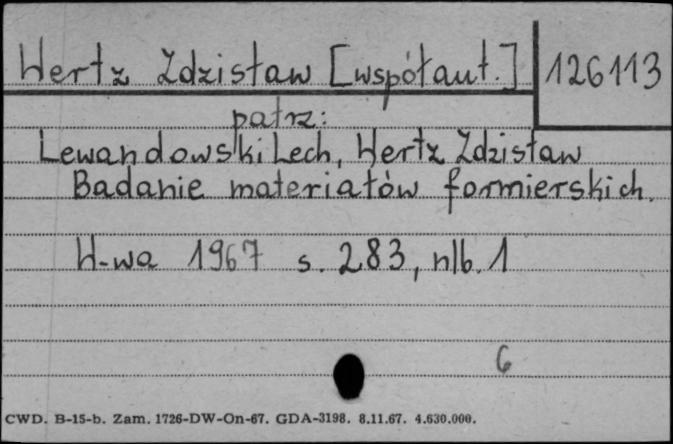 Hertz Zdzisław [współaut.] 126113
patrz:
Lewandowski Lech, Hertz Zdzisław
Badanie materiałów formierskich.
W-wa 1967 s. 283, nlb. 1
6
CWD. B-15-b. Zam. 1726-DW-On-67. GDA-3198. 8.11.67. 4.630.000.